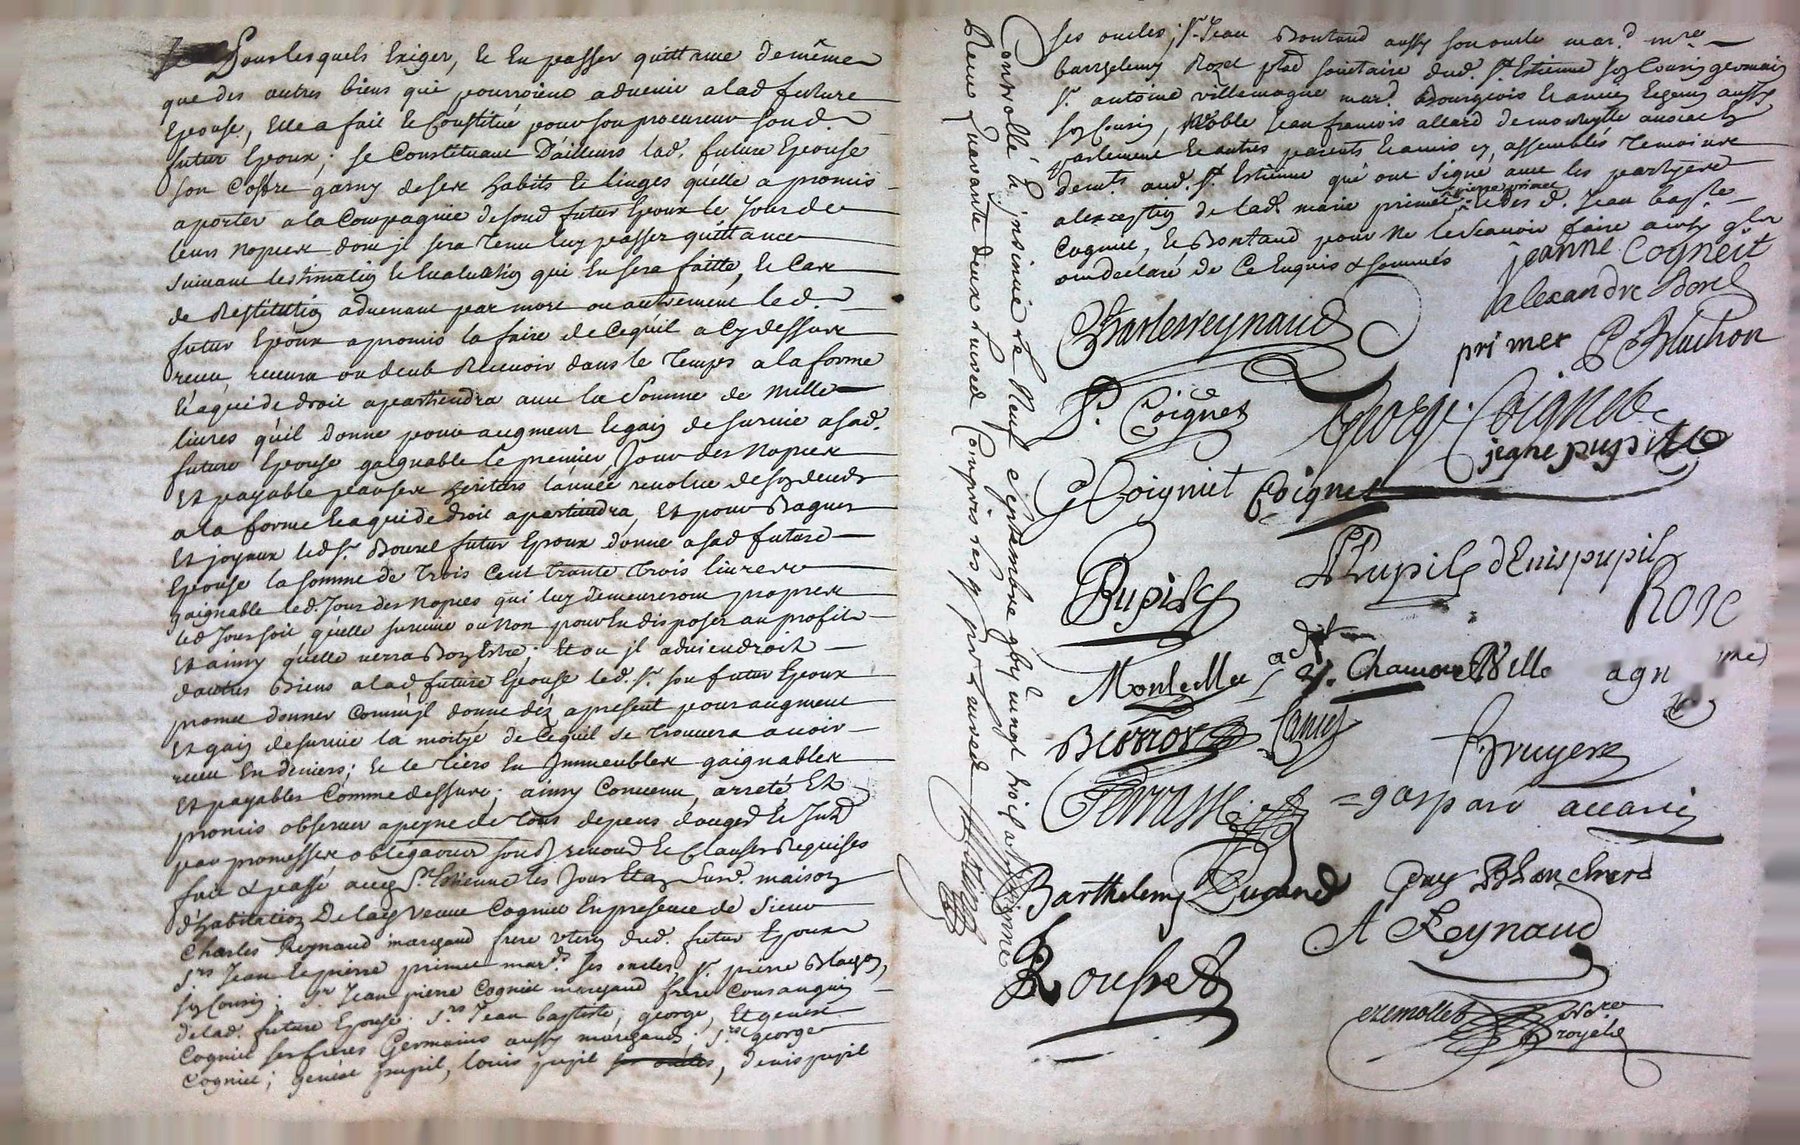 Pour lesquels Exiger, Et En passer quittance de même
que des autres biens qui pourroient advenir a lad future
Epouse, Elle a fait Et Constitué pour son procureur sond.
futur Epoux; se Constituant D'ailleurs lad. future Epouse
son Coffre garny de ses habits Et linges quelle a promis
aporter a la Compagnie de sond futur Epoux le Jour de
leurs nopces dont jl sera tenu luy passer quittance
suivant lestimatio͂ Et Evaluatio͂ qui En sera faitte, Et Cas
de Restitutio͂ advenant par mort ou autrement led.
futur Epoux a promis la faire de Cequil a Cy dessus
receu, recevra ou deub Recevoir dans le temps a la forme
Et a qui de droit apartiendra avec la Somme de mille
livres quil donne pour augment Et gain de survie a sad.
future Epouse gaignable le premier Jour des Nopces
Et payable par ses heritiers l'année revolue de son deceds
a la forme Et a qui de droit apartiendra, Et pour Bagues
Et joyaux led Sr. Bourel futur Epoux donne a sad future
Epouse la somme de trois Cent trante trois livres
gaignable led. Jour des Nopces qui luy demeureront propres
led Jour soit quelle survive ou Non pour En disposer au profit
Et ainsy quelle verra Bon Estre; Et ou jl adviendroit
d'autres Biens a lad future Epouse led. Sr. son futur Epoux
promet donner Comme jl donne dès a present pour augment
Et gain de survie la moityé de Cequil se trouvera avoir
receu En deniers; Et le tiers En Jmmeubles gaignables
Et payables Comme dessus; ainsy Convenu, arreté Et
promis observer a peyne de tous depens
par promesses obligations renond Et Clauses Requises
fait & passé aud St. Estienne les Jour Et an Susd. maison
d'habitation De lad veuve Cogniet En presence de Sieur
Charles Reynaud marchand frere uterin dud. futur Epoux
srs Jean Et pierre primet mards. ses oncles sr. pierre
son Cousin; Sr Jean pierre Cogniet marchand frere Consanguin
de lad. future Epouse. srs. Jean baptiste, george, Et genest
Cogniet ses freres Germains aussy marchands; srs. george
Cogniet; genest pupil, louis pupil, denis pupil
ses oncles; Sr. Jean Bontaud aussy son oncle mard. mre.
barthelemy Rozet pbre societaire dud. St. Estienne son Cousin germain
Sr. antoine villemagne mard. Bourgeois Et ancien Echevin aussy
son Cousin, Noble Jean francois allard de monteille avocat En
parlement Et autres parents Et amis y assemblés temoins
demts aud. St. Estienne qui ont signé avec les partyes
a l'exceptio͂ de lad. marie primet pierre primet Et des d. Jean bapte
Cogniet, Et Bontaud pour Ne le scavoir faire
ont declaré de Ce Enquis & sommés
jeanne. Cogneit
Charles reynaud
alexandre Borel
primet P Bluchon
P. Coignet
George. Coignet
jeane pupille
G Coignet Coignet
Pupil
L Pupil denis pupil
Roze
Monteille
Chamoncel
Ville agn
Bruyere
= gaspard accarie
Barthelemy Durand
guy Blanchard
A Reynaud
Rousset
ezemollet
royal
Controllé & jnsinué le Neuf septembre gbij c. vingt trois a St. Estienne
Receu Quarante deux livres Compris les